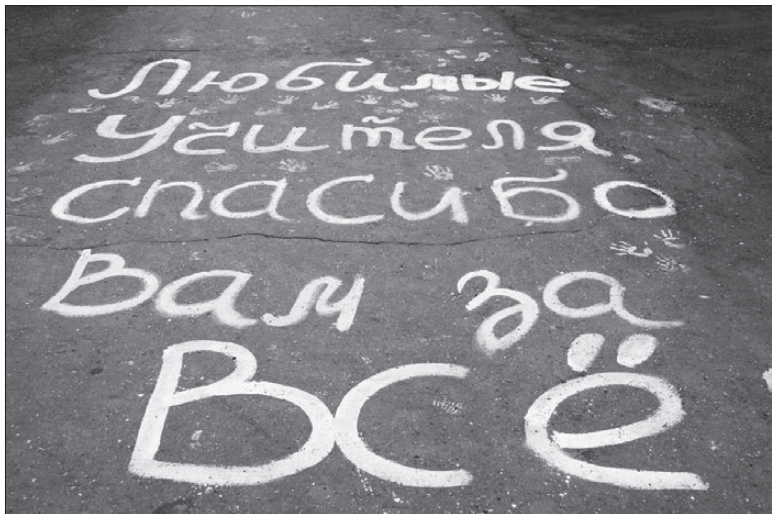 Любимые
Учителя,
спасибо
Вам за
Всё